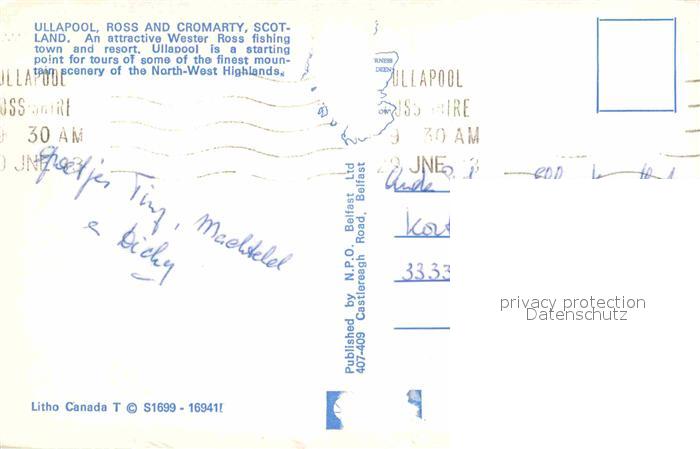 ULLAPOOL, ROSS AND CROMARTY, SCOT-
LAND. An attractive Wester Ross fishing
town and resort. Ullapool is a starting
point for tours of some of the finest moun-
tain scenery of the North-West Highlands.
ULLAPOOL
9 30 AM
JNE
RNESS
DEEN
ULLAPOOL
9 30 AM
JNE
Groetjes Tiny, Machteld
en Dicky
3333
Published by N.P.O. Belfast Ltd
407-409 Castlereagh Road, Belfast
privacy protection
Datenschutz
Litho Canada T © S1699 - 16941